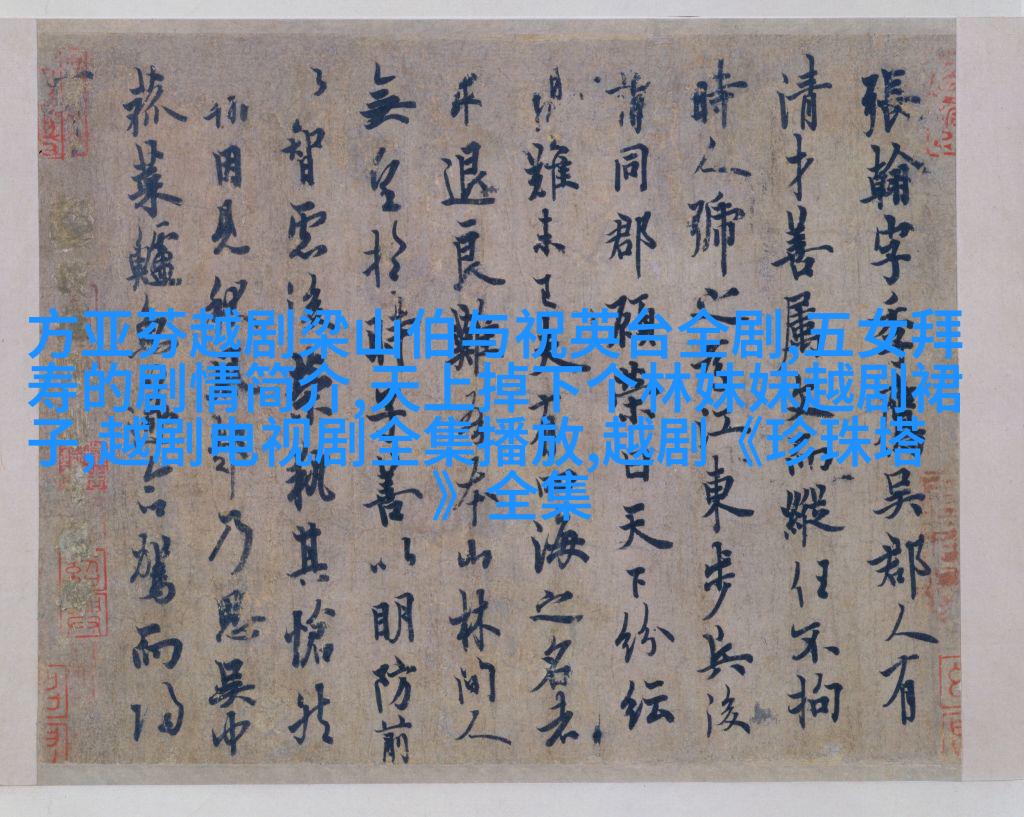 張翰字 吳郡人有
清才善屬文而縱任不拘
時人號之為江東步兵後
同郡顧榮曰天下紛紜
難未已夫有四海之名者
求退良難吾本山林間人
無望於時子善以明防前
以智慮後榮執其愴然
翰因見 乃思吳中
菰菜鱸魚 命駕而歸
方亚芬越剧梁山伯与祝英台全剧,五女拜
寿的剧情简介,天上掉下个林妹妹越剧裙
子,越剧电视剧全集播放,越剧《珍珠塔
》全集